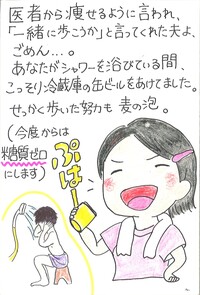 医者から痩せるように言われ、
「一緒に歩こうか」と言ってくれた夫よ、
ごめん…。
あなたがシャワーを浴びている間、
こっそり冷蔵庫の缶ビールをあけてました。
せっかく歩いた努力も麦の泡。
(今度からは
糖質ゼロ
にします)
ぷはー